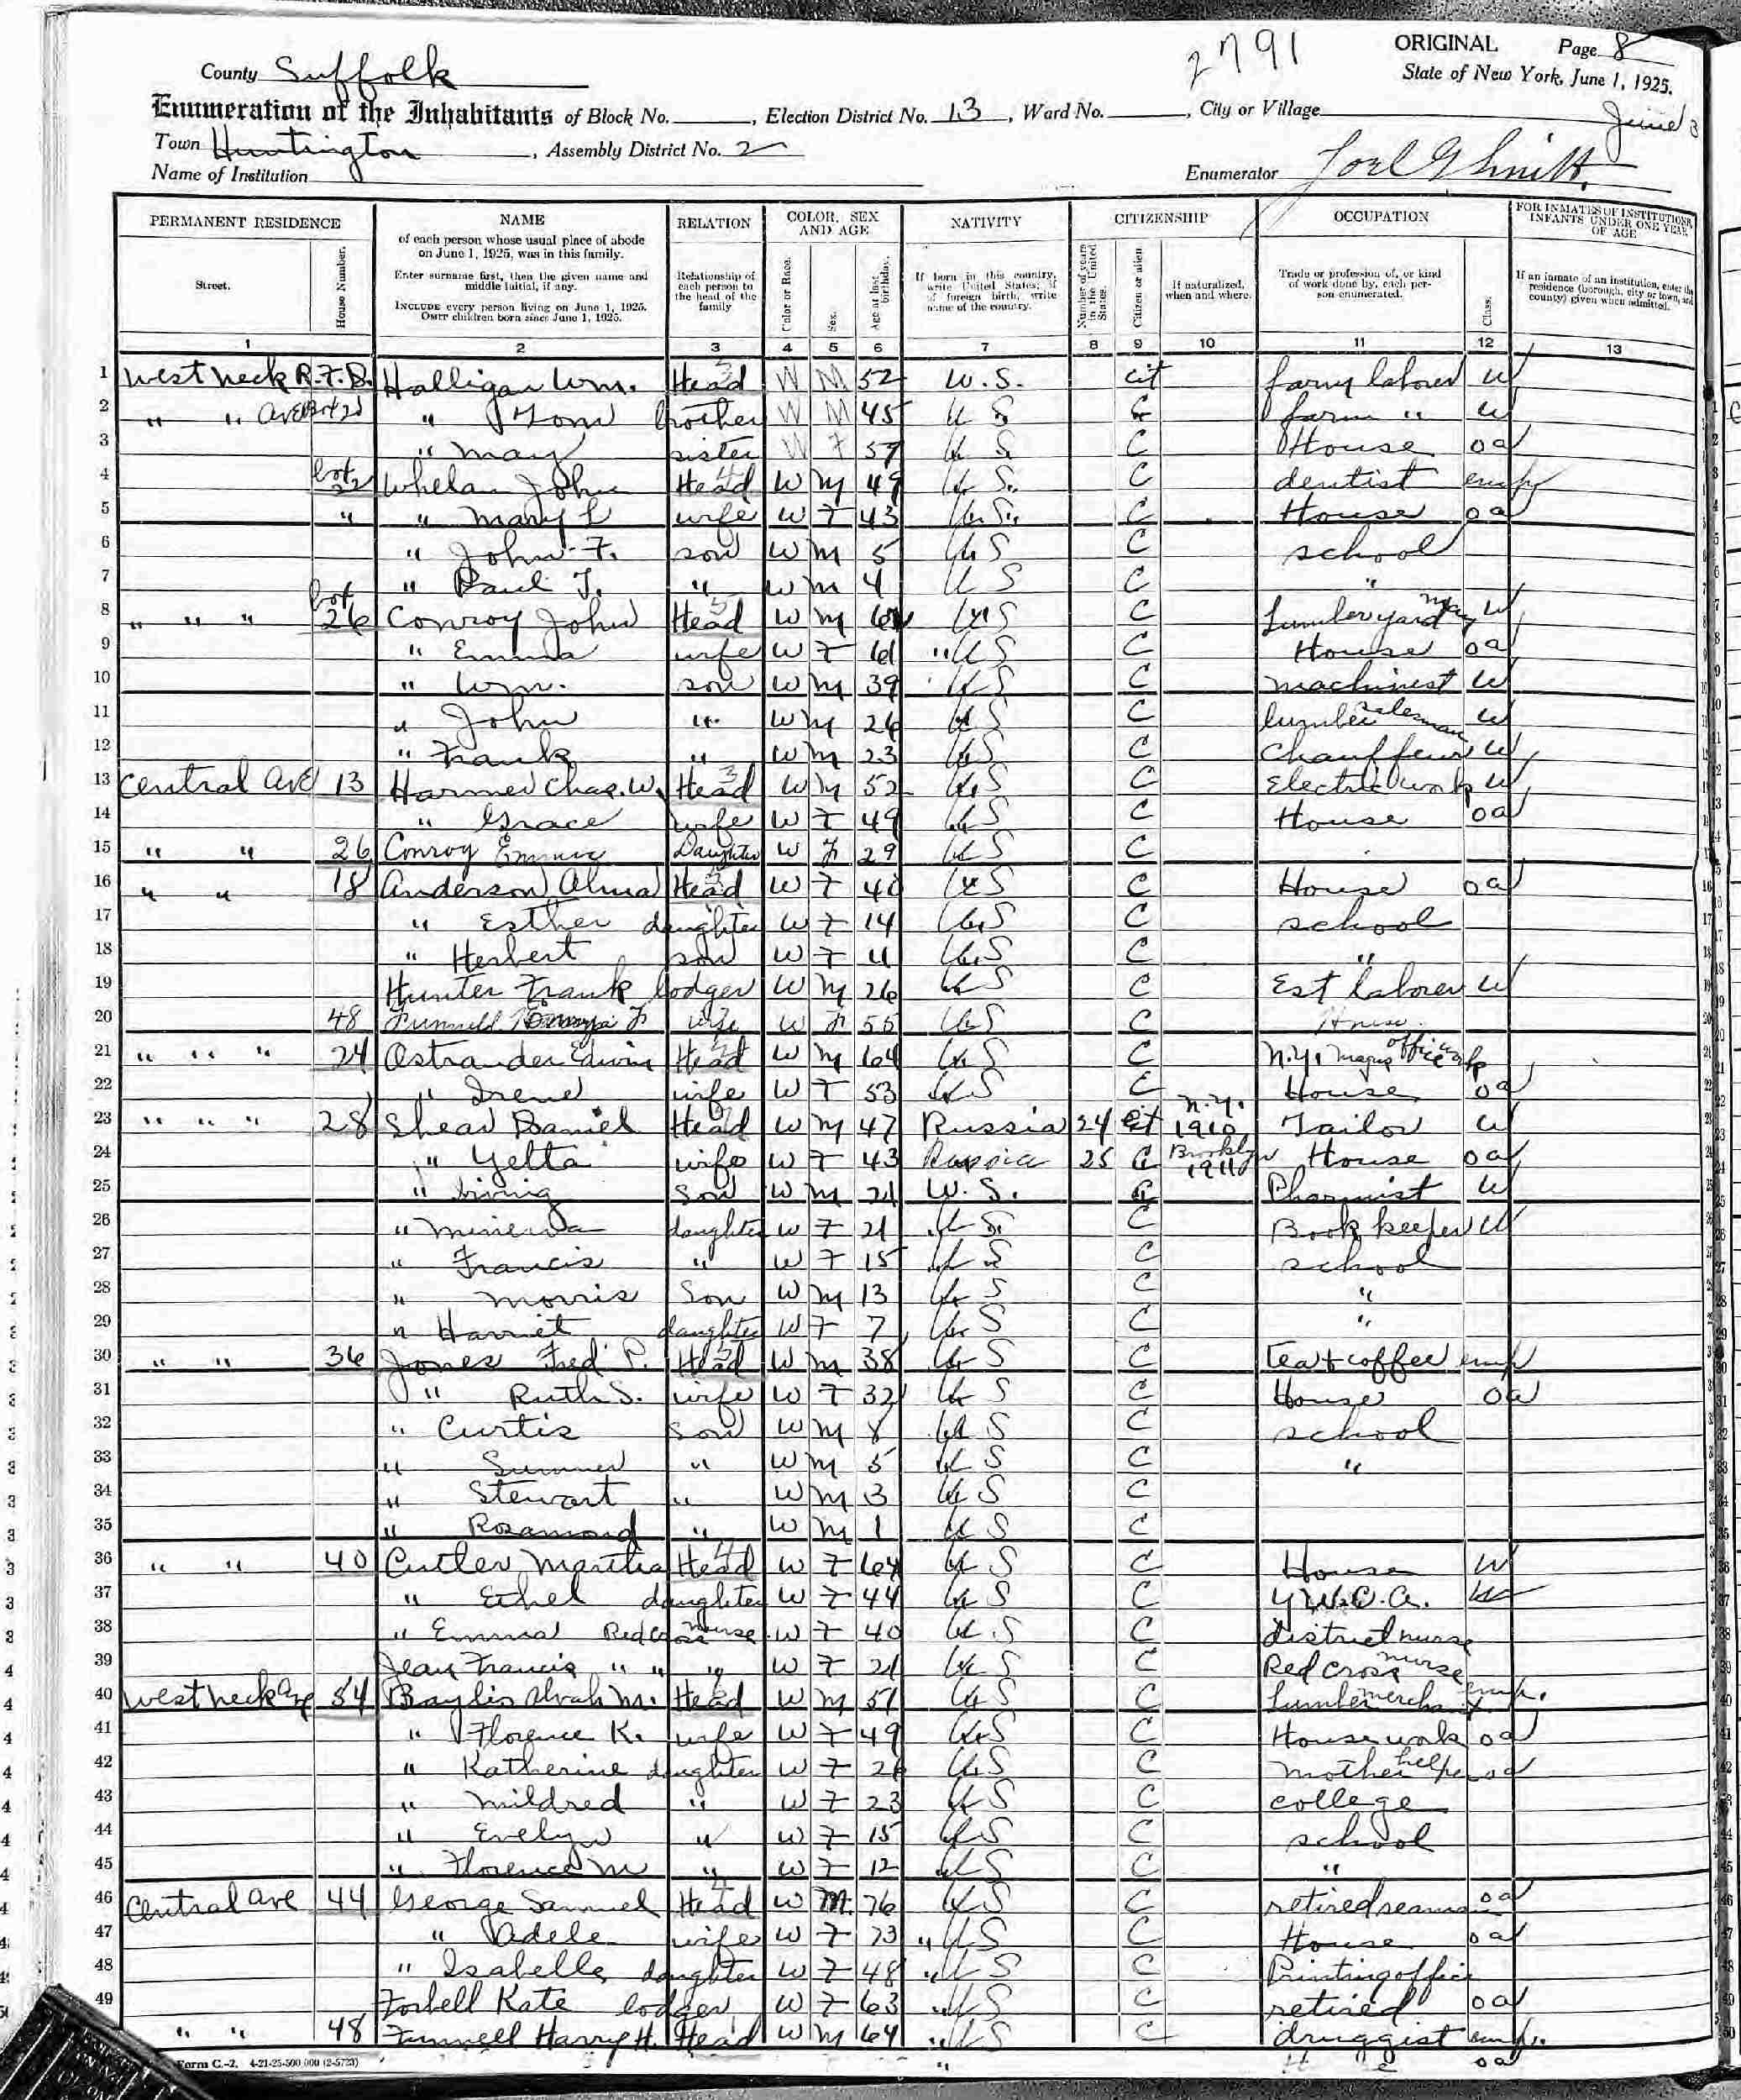 2791
ORIGINAL Page 8
County Suffolk
State of New York, June 1, 1925.
Enumeration of the Inhabitants of Block No. , Election District No. 13 , Ward No. , City or Village
June 3
Town Huntington , Assembly District No. 2
Name of Institution
Enumerator
PERMANENT RESIDENCE NAME RELATION COLOR, SEX AND AGE NATIVITY CITIZENSHIP OCCUPATION FOR INMATES OF INSTITUTIONS, INFANTS UNDER ONE YEAR OF AGE
Street. House Number.
of each person whose usual place of abode on June 1, 1925, was in this family.
Enter surname first, then the given name and middle initial, if any.
INCLUDE every person living on June 1, 1925. OMIT children born since June 1, 1925.
Relationship of each person to the head of the family
Color or Race. Sex. Age at last birthday.
If born in this country, write United States; if of foreign birth, write name of the country.
Number of years in the United States. Citizen or alien If naturalized, when and where.
Trade or profession of, or kind of work done by, each person enumerated. Class.
If an inmate of an institution, enter the residence (borough, city or town, and county) given when admitted.
1 2 3 4 5 6 7 8 9 10 11 12 13
1 West Neck R.F.D. Halligan Wm. Head W M 52 U.S. cit farm laborer W
2 " " Ave " Tom brother W M 45 U S C farm " W
3 " May sister W F 57 U S C House oa
4 bot 22 Whelan John Head W M 49 U.S. C dentist emp
5 " " Mary L wife W F 43 U.S. C House oa
6 " John F. son W M 5 U S C school
7 " Paul J. " W M 4 U S C "
8 " " " bot 26 Conroy John Head W M U S C Lumber yard W
9 " Emma wife W F 61 " U S C House oa
10 " Wm. son W M 39 U S C machinest W
11 " John " W M 26 U S C lumber salesman W
12 " Frank " W M 23 U S C Chauffeur W
13 Central Ave 13 Harmer Chas. W. Head W M 52 U S C Electric work W
14 " Grace wife W F 49 U S C House oa
15 " " 26 Conroy Emma Daughter W F 29 U S C
16 " " 18 Anderson Alma Head W F 40 U S C House oa
17 " Esther daughter W F 14 U S C school
18 " Herbert son W F 11 U S C "
19 Hunter Frank lodger W M 26 U S C Est laborer W
20 48 wife W F 55 U S C House
21 " " " 24 Ostrander Edwin Head W M 64 U S C N.Y. office work
22 " Irene wife W F 53 U S C House oa
23 " " " 28 Shear Daniel Head W M 47 Russia 24 Cit N.Y. 1910 Tailor W
24 " Yetta wife W F 43 Russia 25 C Brooklyn 1910 House oa
25 " Irving Son W M 21 U.S. C Pharmist W
26 " Minerva daughter W F 21 U S C Book keeper W
27 " Francis " W F 15 U S C school
28 " Morris Son W M 13 U S C "
29 " Harriet daughter W F 7 U S C "
30 " " 36 Jones Fred P. Head W M 38 U S C Tea & coffee emp
31 " Ruth S. wife W F 32 U S C House oa
32 " Curtis Son W M 8 U S C school
33 " Sumner " W M 5 U S C "
34 " Stewart " W M 3 U S C
35 " Rosamond " W M 1 U S C
36 " " 40 Cutler Martha Head W F 64 U S C House W
37 " Ethel daughter W F 44 U S C Y.W.C.A. W
38 " Emma Red Cross nurse W F 40 U S C district nurse
39 Jean Francis " " " W F 21 U S C Red Cross nurse
40 West Neck Ave 54 Baylis Alvah M. Head W M 51 U S C Lumber merchant emp.
41 " Florence K. wife W F 49 U S C House work oa
42 " Katherine daughter W F 26 U S C mother help oa
43 " Mildred " W F 23 U S C college
44 " Evelyn " W F 15 U S C school
45 " Florence M " W F 12 U S C "
46 Central Ave 44 George Samuel Head W M. 76 U S C retired seaman oa
47 " Adele wife W F 73 " U S C House oa
48 " Isabelle daughter W F 48 " U S C Printing office
49 Forbell Kate lodger W F 63 " U S C retired oa
" " 48 Funnell Harry H. Head W M 64 " U S C druggist emp.
Form C.-2. 4-21-25-500,000 (2-5723) " oa